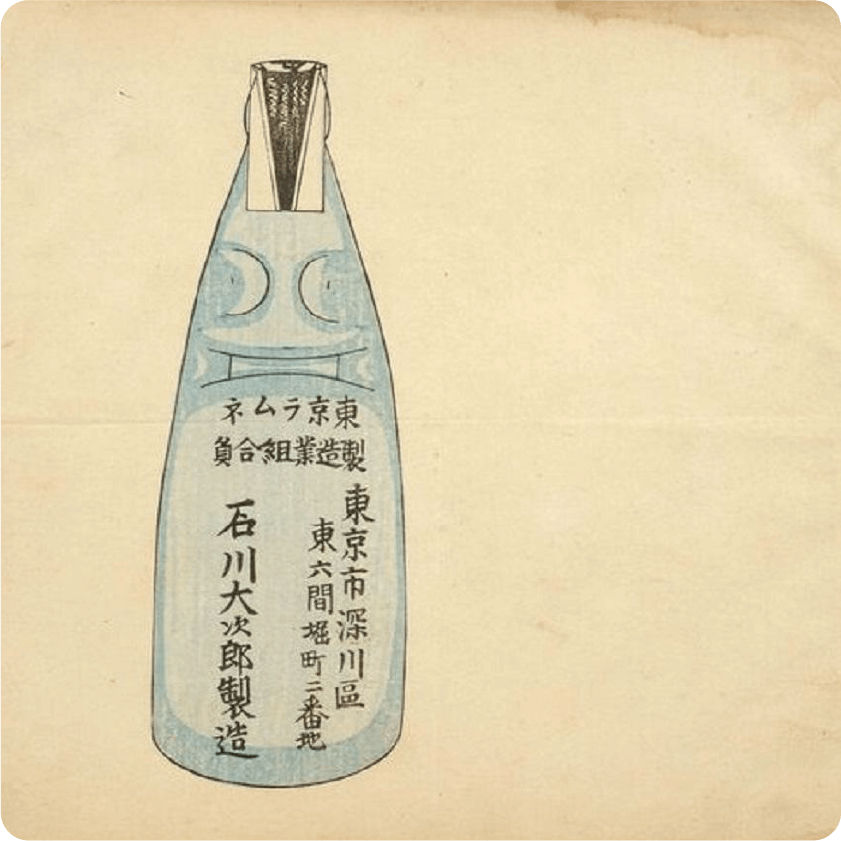 東京ラムネ
製造業組合員
東京市深川區
東六間堀町二番地
石川大次郎製造